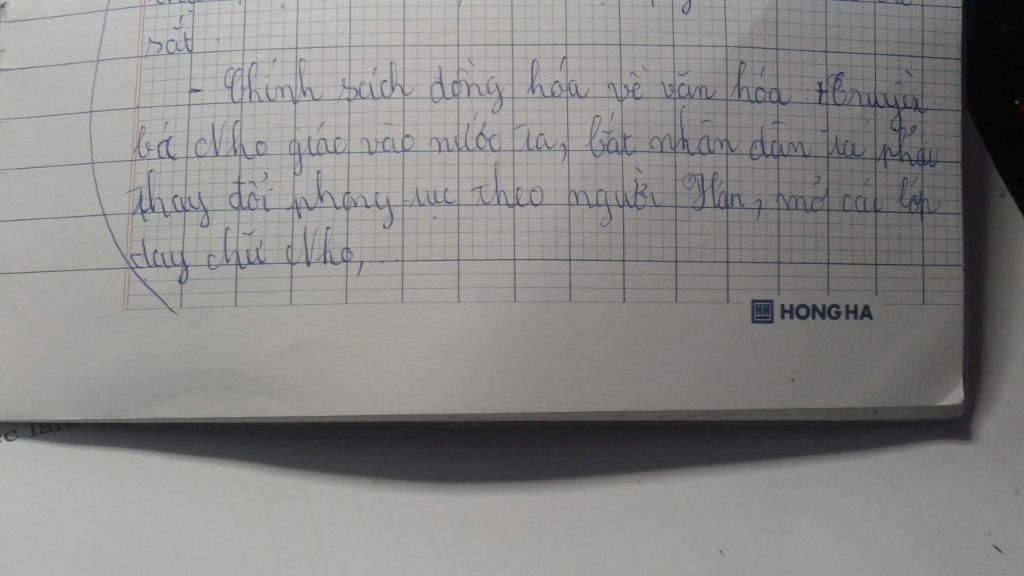 sắt.
- Chính sách đồng hóa về văn hóa: truyền
bá Nho giáo vào nước ta, bắt nhân dân ta phải
thay đổi phong tục theo người Hán, mở các lớp
dạy chữ Nho,...
HONG HA